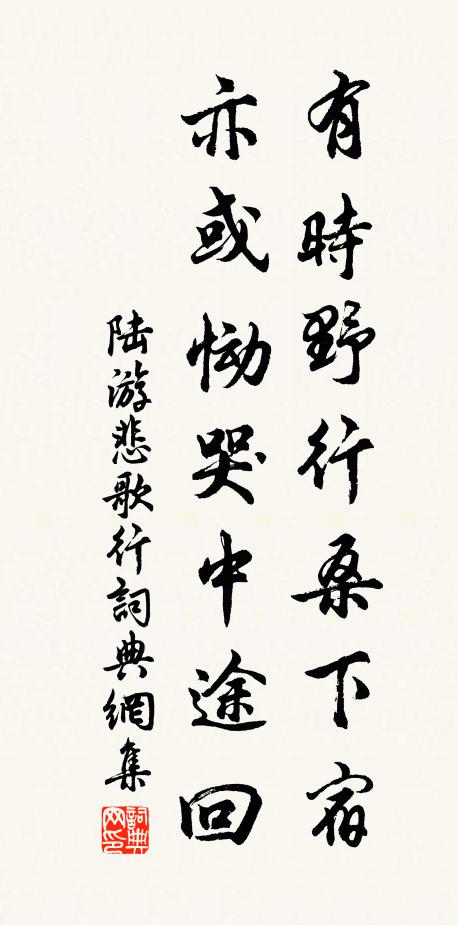 有時野行桑下宿
亦或慟哭中途回
陆游悲歌行詞典網集
詞典网印